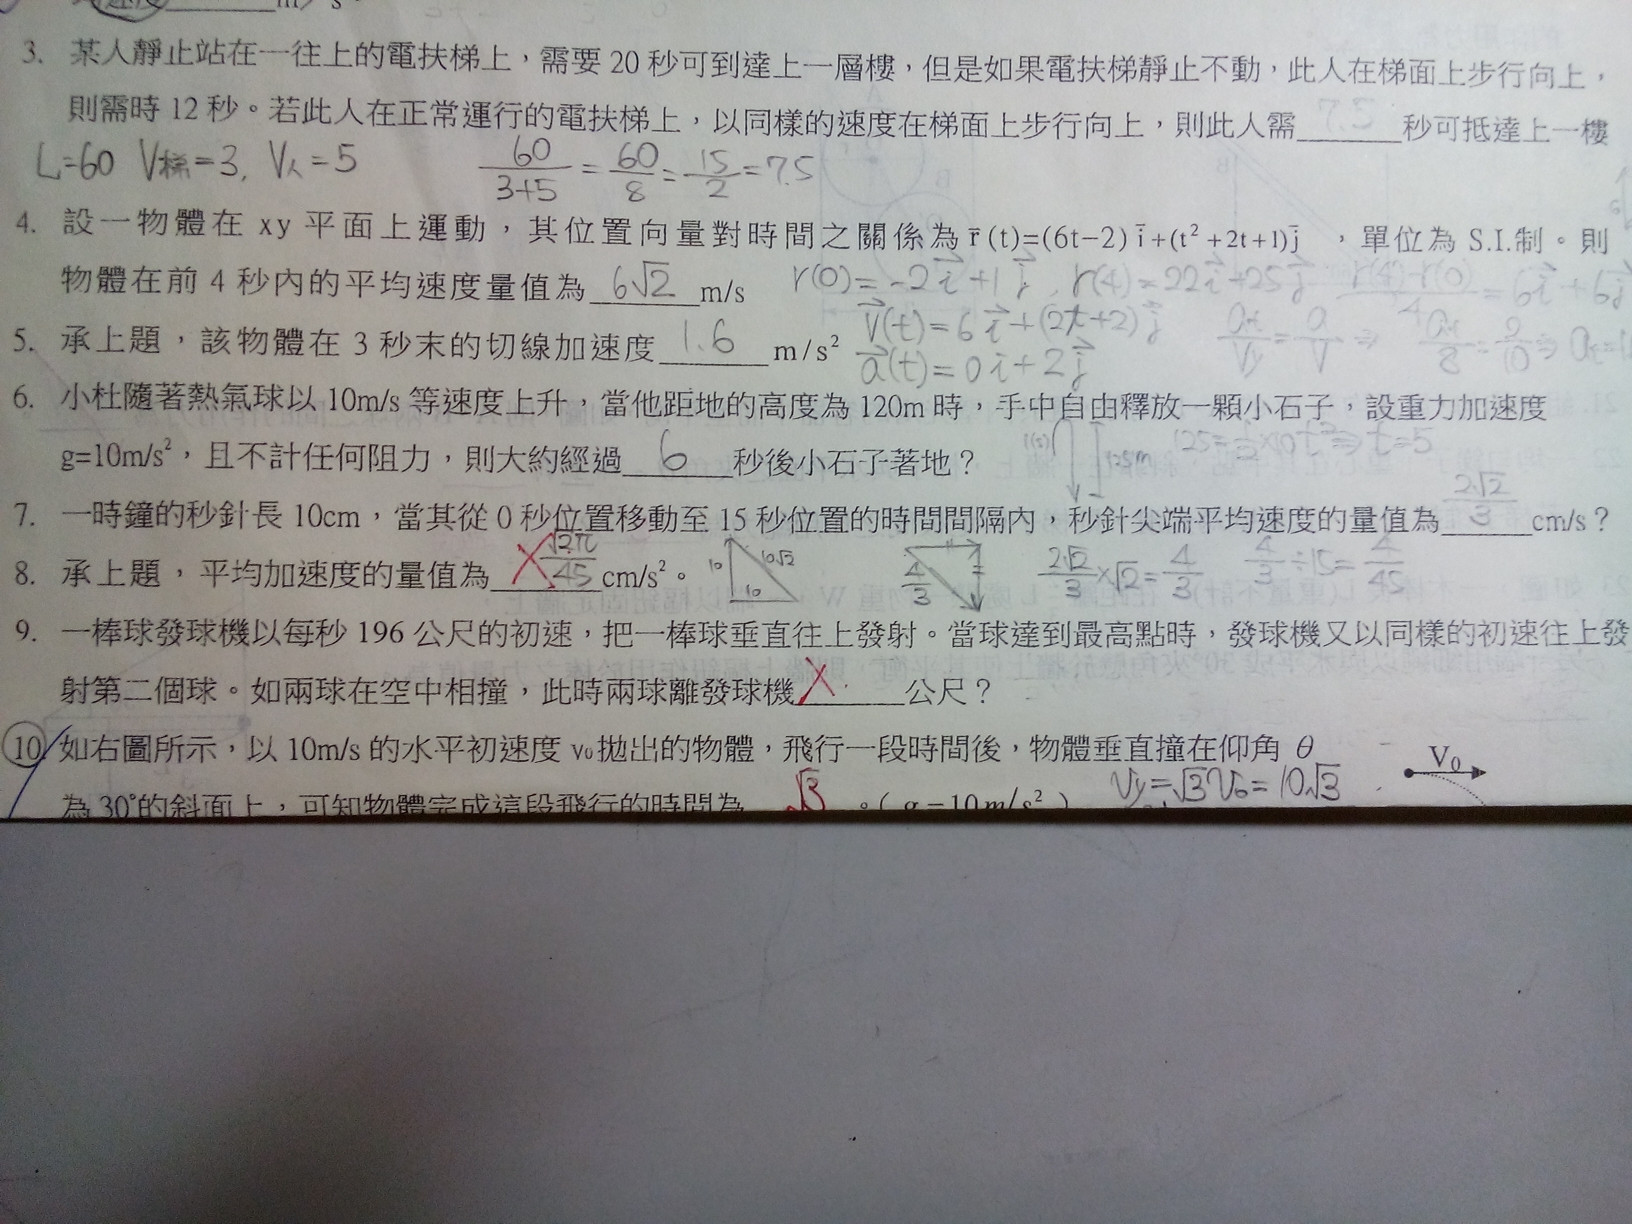 m/s。
3. 某人靜止站在一往上的電扶梯上，需要 20 秒可到達上一層樓，但是如果電扶梯靜止不動，此人在梯面上步行向上，
則需時 12 秒。若此人在正常運行的電扶梯上，以同樣的速度在梯面上步行向上，則此人需 7.5 秒可抵達上一樓
L=60 V梯=3, V人=5 60/(3+5) = 60/8 = 15/2 = 7.5
4. 設一物體在 xy 平面上運動，其位置向量對時間之關係為 r̄(t)=(6t−2)ī+(t²+2t+1)j̄ ，單位為 S.I.制。則
物體在前 4 秒內的平均速度量值為 6√2 m/s r(0)=-2i⃗+1j⃗, r(4)=22i⃗+25j⃗ (r(4)-r(0))/4 = 6i⃗+6j⃗
5. 承上題，該物體在 3 秒末的切線加速度 1.6 m/s² v⃗(t)=6i⃗+(2t+2)j⃗ at/Vy = a/V ⇒ at/8 = 2/10 ⇒ at=1
a⃗(t)=0i⃗+2j⃗
6. 小杜隨著熱氣球以 10m/s 等速度上升，當他距地的高度為 120m 時，手中自由釋放一顆小石子，設重力加速度
g=10m/s²，且不計任何阻力，則大約經過 6 秒後小石子著地？ 1(s) 125m 125=½×10t²⇒t=5
7. 一時鐘的秒針長 10cm，當其從 0 秒位置移動至 15 秒位置的時間間隔內，秒針尖端平均速度的量值為 2√2/3 cm/s？
8. 承上題，平均加速度的量值為 √2π/45 cm/s²。 10 10√2 10 4/3 2√2/3 ×√2 = 4/3 4/3÷15=4/45
9. 一棒球發球機以每秒 196 公尺的初速，把一棒球垂直往上發射。當球達到最高點時，發球機又以同樣的初速往上發
射第二個球。如兩球在空中相撞，此時兩球離發球機 公尺？
10. 如右圖所示，以 10m/s 的水平初速度 v₀拋出的物體，飛行一段時間後，物體垂直撞在仰角 θ V₀
為 30°的斜面上，可知物體完成這段飛行的時間為 √3 。( g=10m/s² ) Vy=√3V₀=10√3